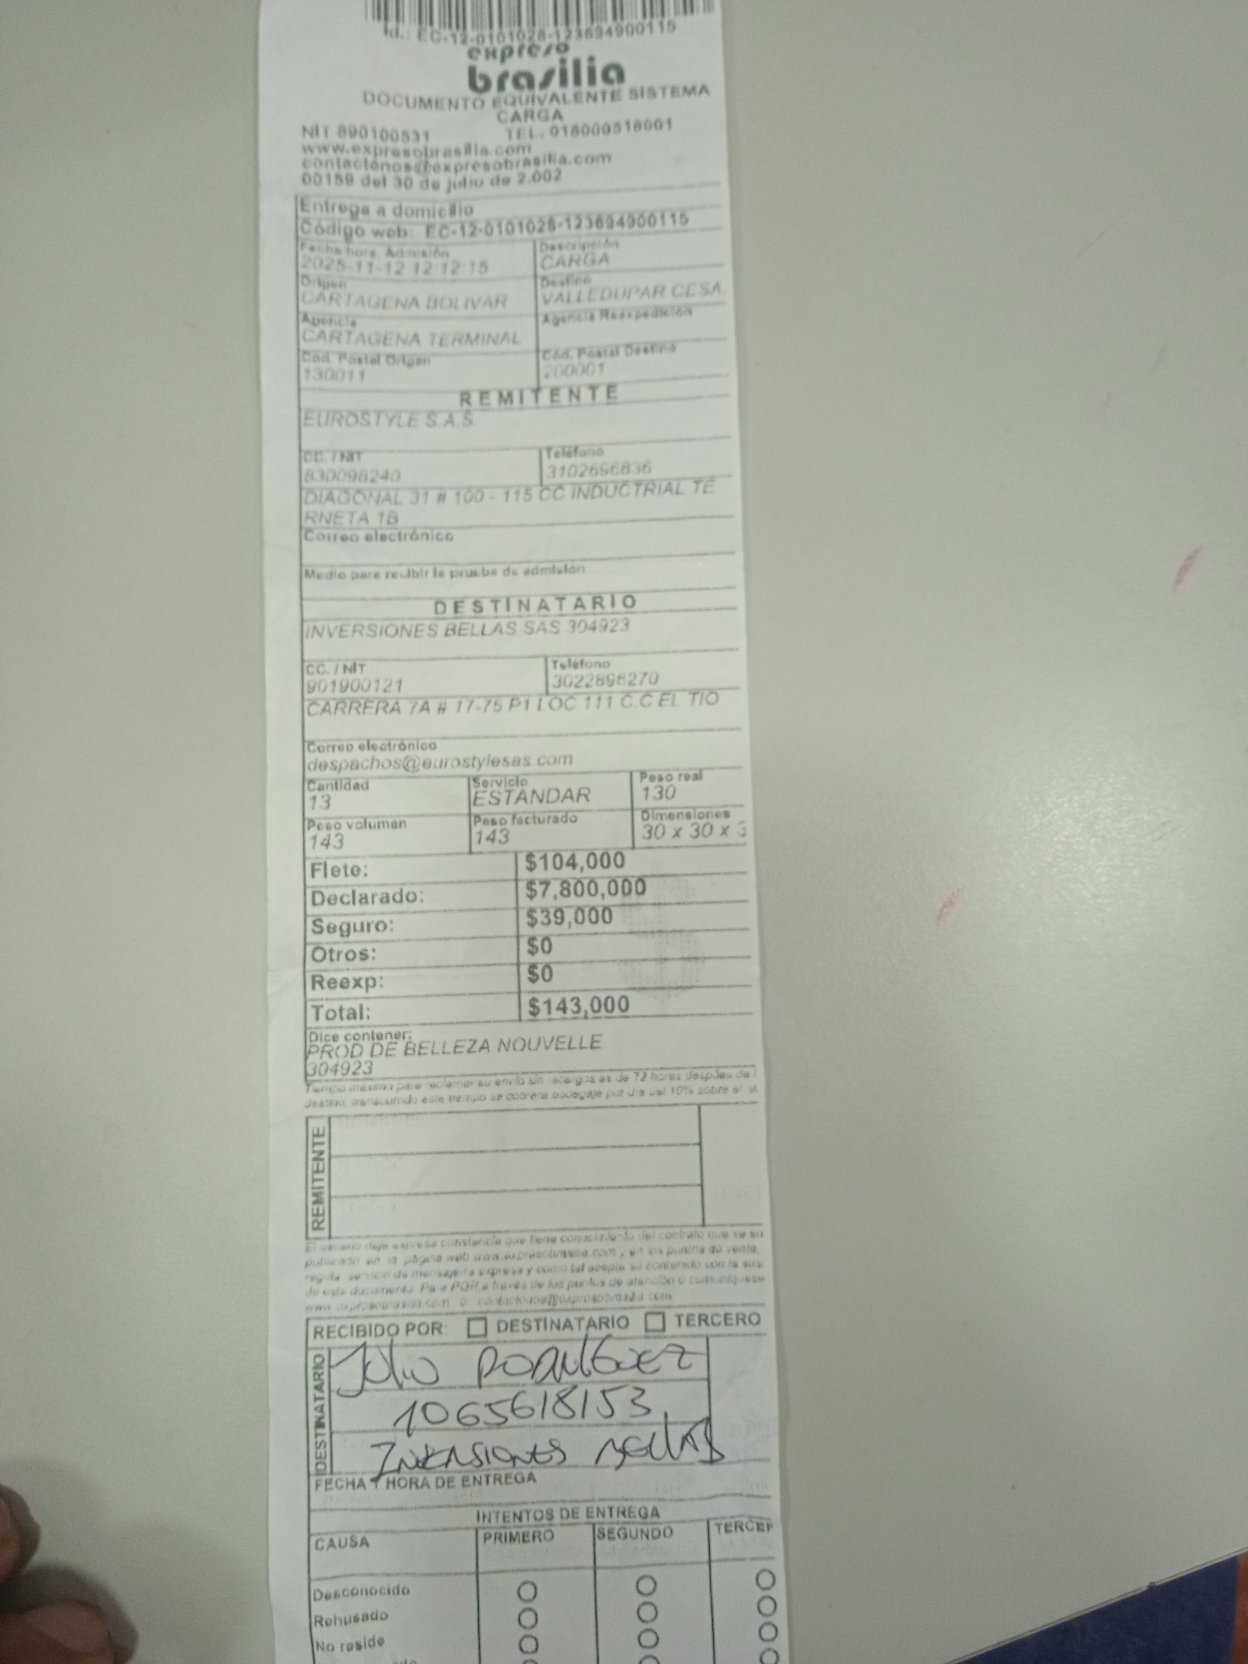 Id.: EC-12-0101028-123694900115
expreso
brasilia
DOCUMENTO EQUIVALENTE SISTEMA
CARGA
NIT 890100531 TEL. 018000518001
www.expresobrasilia.com
contactenos@expresobrasilia.com
00159 del 30 de julio de 2.002
Entrega a domicilio
Código web: EC-12-0101028-123694900115
Fecha hora. Admisión Descripción
2025-11-12 12:12:15 CARGA
Origen Destino
CARTAGENA BOLIVAR VALLEDUPAR CESA
Agencia Agencia Reexpedición
CARTAGENA TERMINAL
Cód. Postal Origen Cód. Postal Destino
130011 200001
REMITENTE
EUROSTYLE S.A.S
CC. / NIT Teléfono
830098240 3102696836
DIAGONAL 31 # 100 - 115 CC INDUCTRIAL TE
RNETA 1B
Correo electrónico
Medio para recibir la prueba de admisión
DESTINATARIO
INVERSIONES BELLAS SAS 304923
CC. / NIT Teléfono
901900121 3022896270
CARRERA 7A # 17-75 P1 LOC 111 C.C EL TIO
Correo electrónico
despachos@eurostylesas.com
Cantidad Servicio Peso real
13 ESTANDAR 130
Peso volumen Peso facturado Dimensiones
143 143 30 x 30 x 3
Flete: $104,000
Declarado: $7,800,000
Seguro: $39,000
Otros: $0
Reexp: $0
Total: $143,000
Dice contener:
PROD DE BELLEZA NOUVELLE
304923
Tiempo máximo para reclamar su envío sin recargos es de 72 horas después de l
destino, transcurrido este tiempo se cobrará bodegaje por día del 10% sobre el v
REMITENTE
El usuario deja expresa constancia que tiene conocimiento del contrato que se en
publicado en la página web www.expresobrasilia.com y en los puntos de venta,
regula servicio de mensajería expresa y como tal acepta su contenido con la sus
de este documento. Para PQR a través de los puntos de atención o comuníquese
www.expresobrasilia.com o contactenos@expresobrasilia.com
RECIBIDO POR: DESTINATARIO TERCERO
DESTINATARIO
Julio RODRIGUEZ
1065618153
INVERSIONES BELLAS
FECHA Y HORA DE ENTREGA
INTENTOS DE ENTREGA
CAUSA PRIMERO SEGUNDO TERCER
Desconocido
Rehusado
No reside